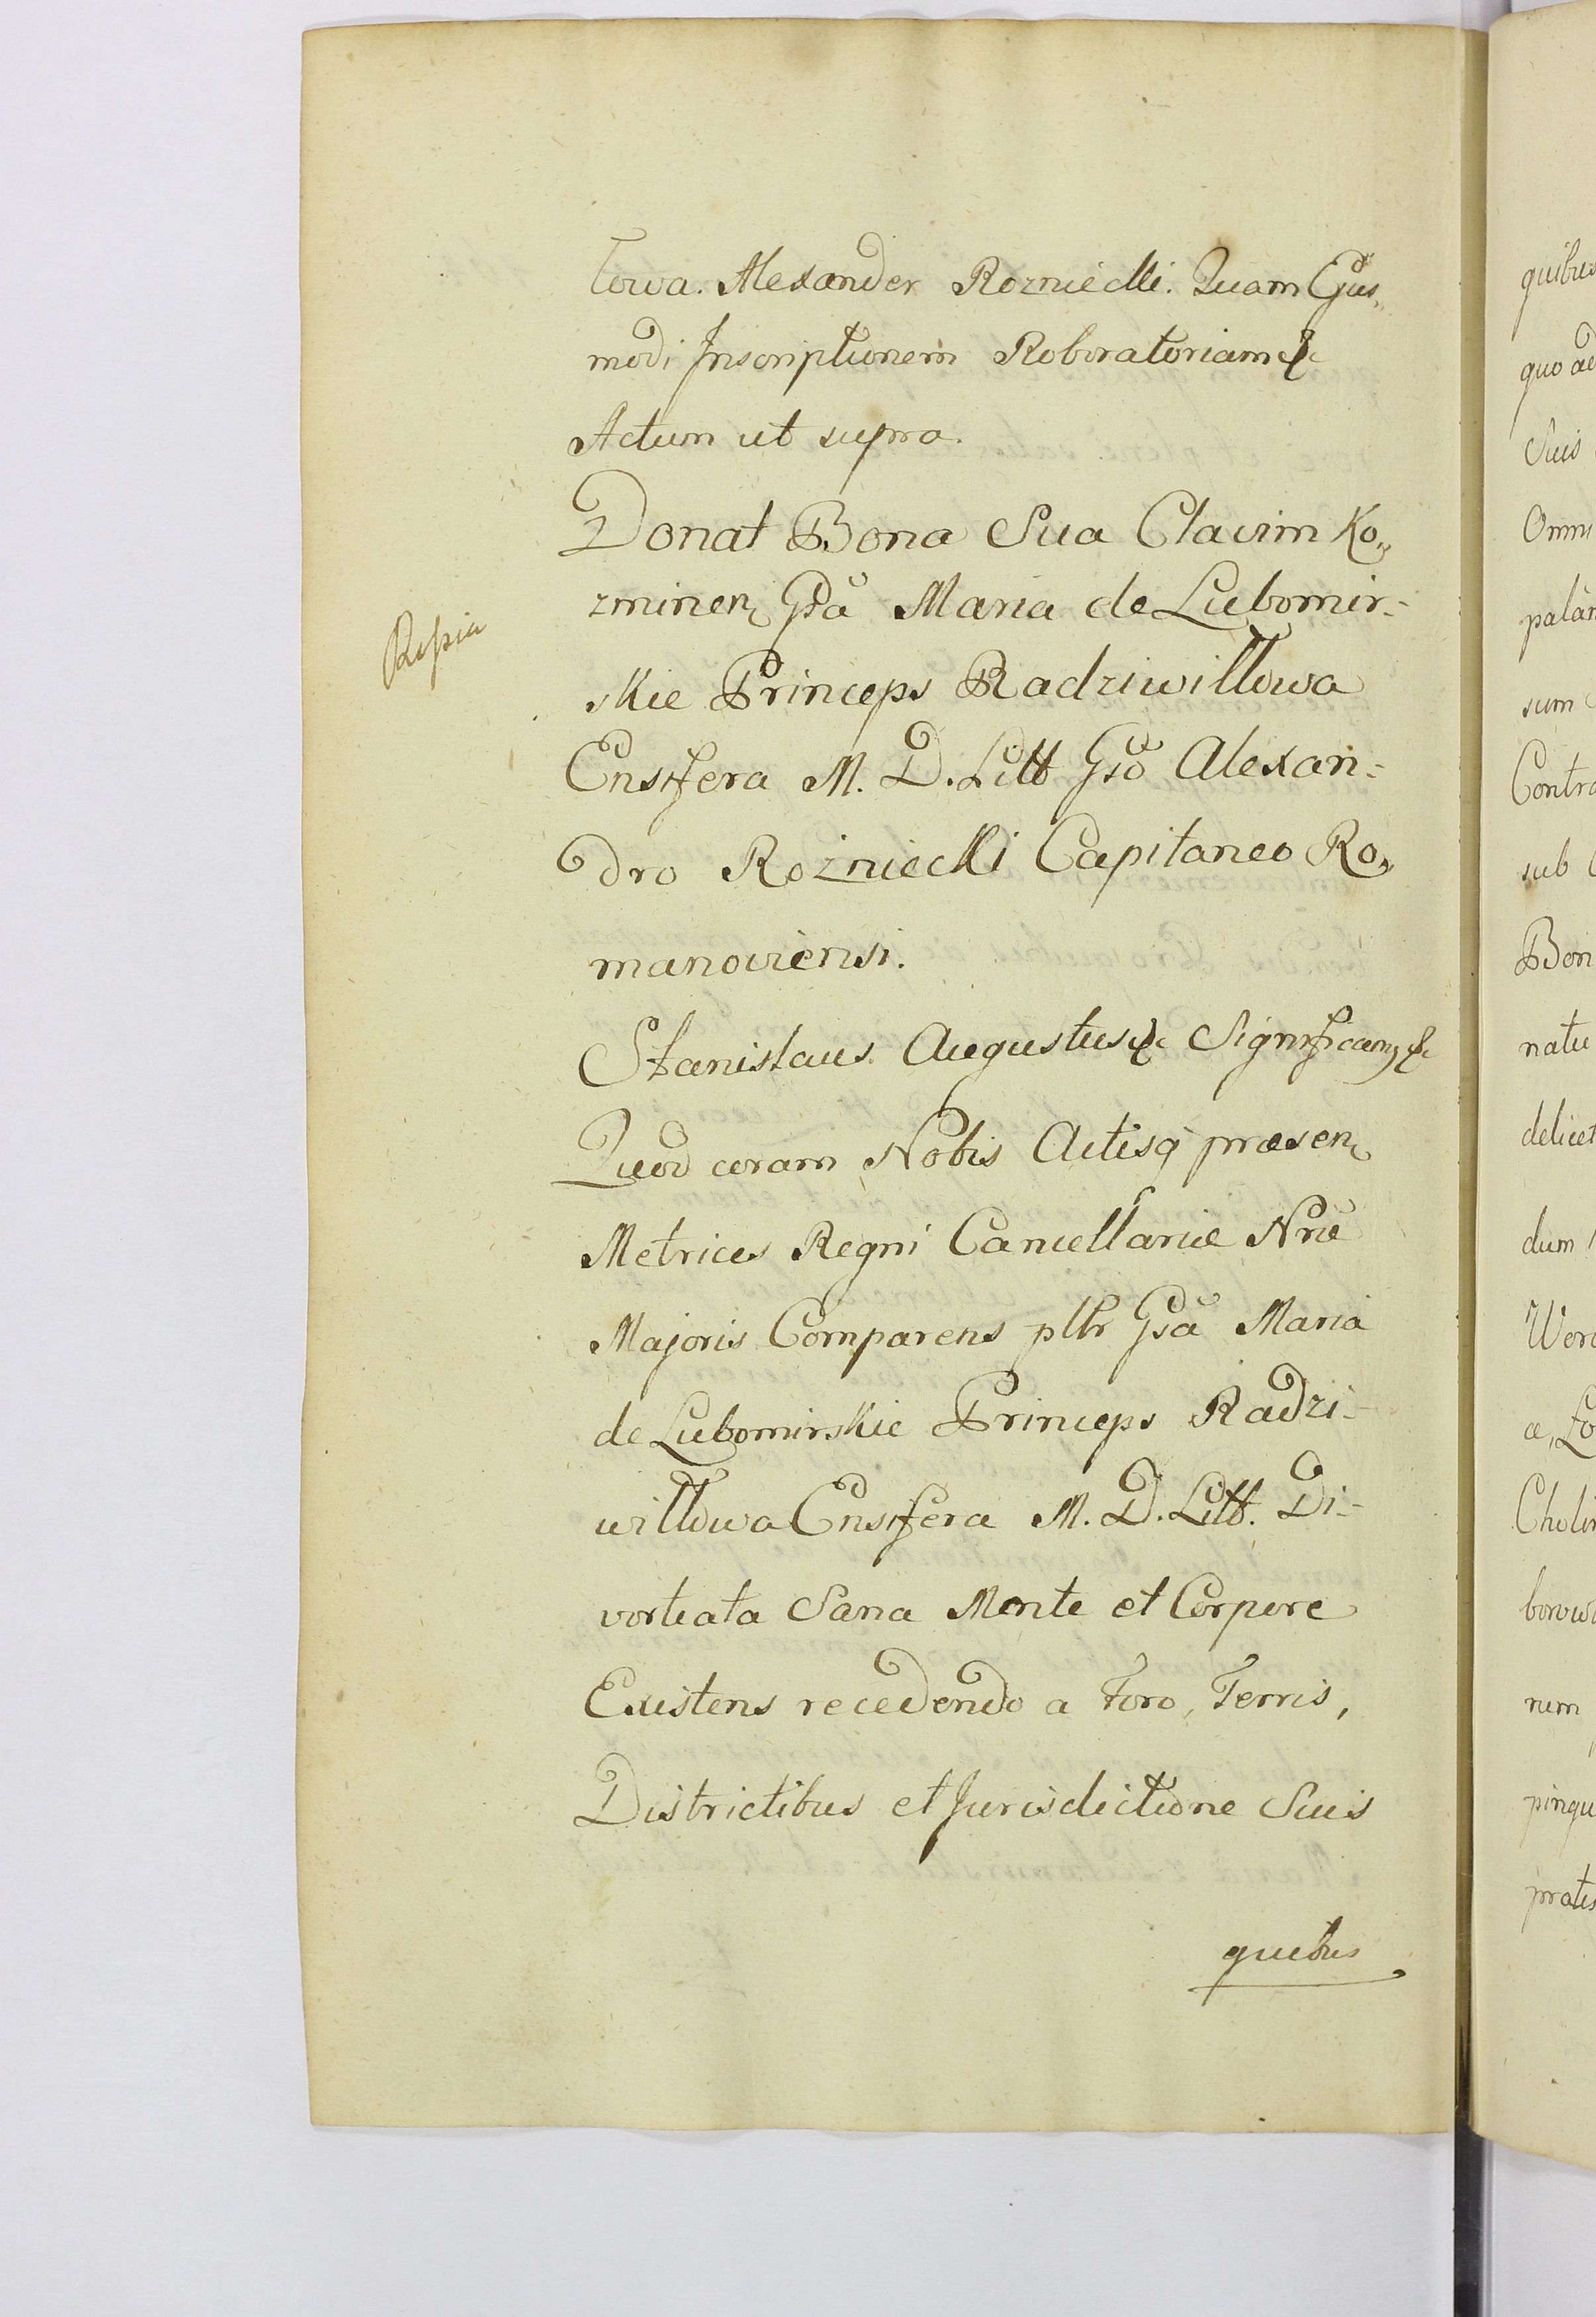 towa. Alexander Rozniecki. Quam Ejus„
modi Inscriptionem Roboratoriam &c
Actum ut supra.
Donat Bona Sua Clavim Ko„
zminen Gsa Maria de Lubomir-
skie Princeps Radziwiłłowa
Ensifera M. D. Litt Gso Alexan-
dro Rozniecki Capitaneo Ro„
manoviensi.
Stanislaus Augustus &c Significam &c
Quod coram Nobis Actisq praesen
Metrices Regni Cancellariæ Nræ
Majoris Comparens plr Gsa Maria
de Lubomirskie Princeps Radzi-
wiłłowa Ensifera M. D. Litt. Di-
vorteata Sana Mente et Corpore
Existens recedendo a Foro, Terris,
Districtibus et Jurisdictione Suis
quibus
quibus
quo ad
Suis
Omni
palam
sum
Contra
sub
Bon
natu
delicet
dum
Wero
a, Lo
Cholin
borow
nem
pinqu
pratis